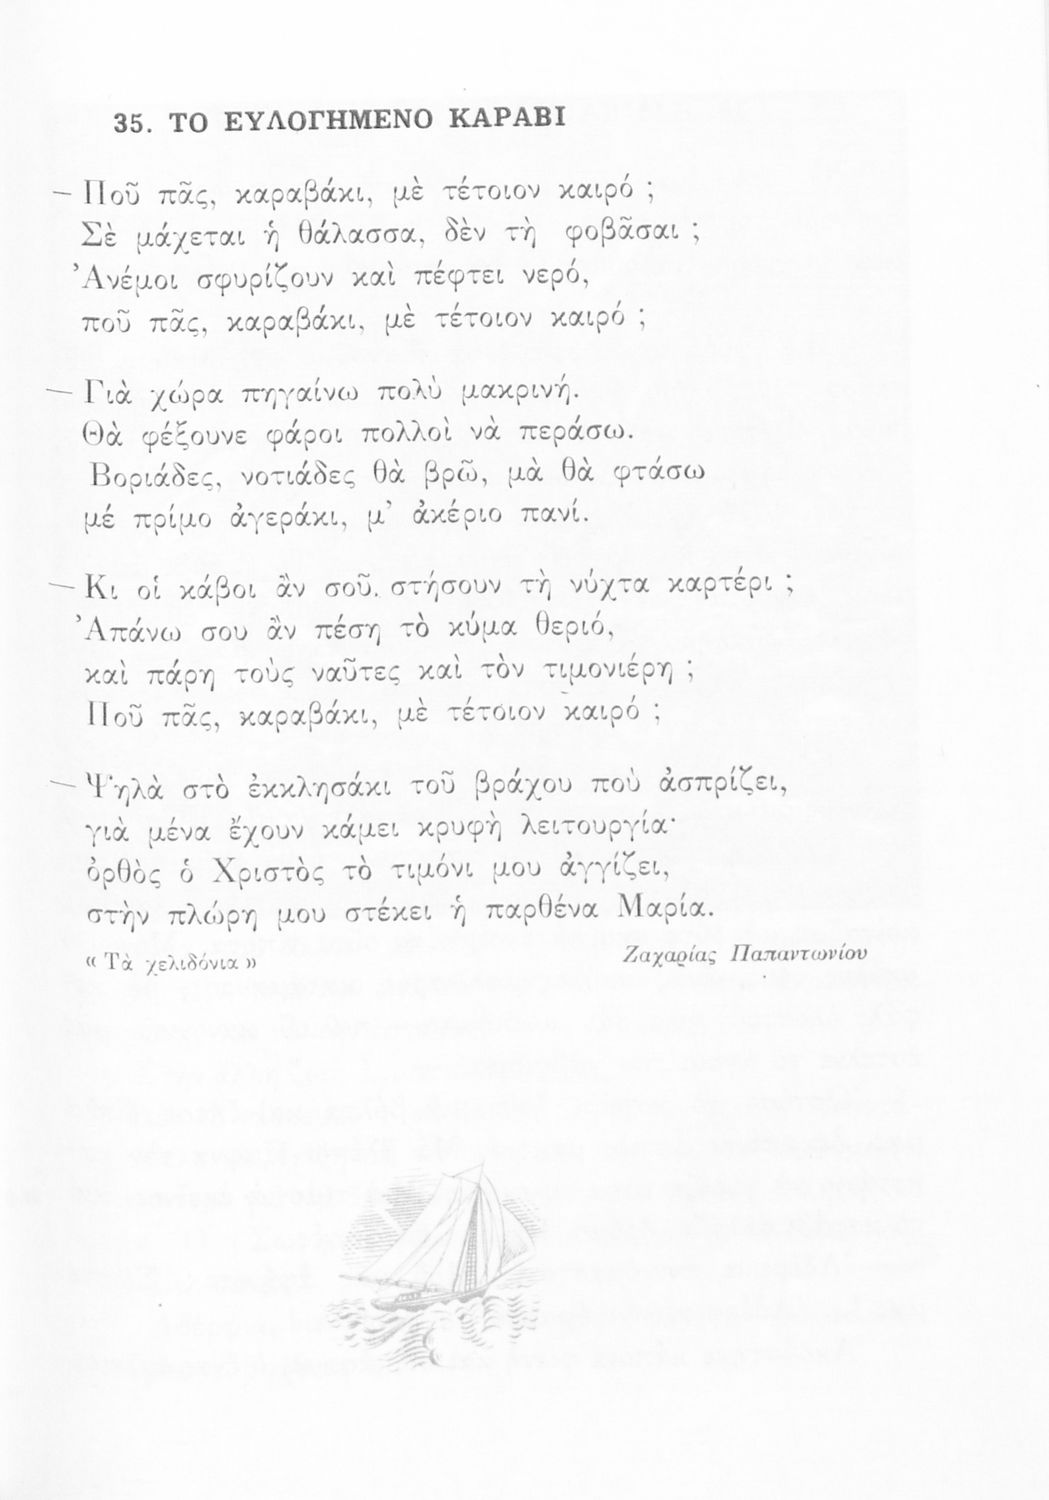 35. ΤΟ ΕΥΛΟΓΗΜΕΝΟ ΚΑΡΑΒΙ
— Ποῦ πᾶς, καραβάκι, μὲ τέτοιον καιρό ;
Σὲ μάχεται ἡ θάλασσα, δὲν τὴ φοβᾶσαι ;
Ἀνέμοι σφυρίζουν καὶ πέφτει νερό,
ποῦ πᾶς, καραβάκι, μὲ τέτοιον καιρό ;
— Γιὰ χώρα πηγαίνω πολὺ μακρινή.
Θὰ φέξουνε φάροι πολλοὶ νὰ περάσω.
Βοριάδες, νοτιάδες θὰ βρῶ, μὰ θὰ φτάσω
μέ πρίμο ἀγεράκι, μ’ ἀκέριο πανί.
— Κι οἱ κάβοι ἂν σοῦ. στήσουν τὴ νύχτα καρτέρι ;
Ἀπάνω σου ἂν πέση τὸ κύμα θεριό,
καὶ πάρη τοὺς ναῦτες καὶ τὸν τιμονιέρη ;
Ποῦ πᾶς, καραβάκι, μὲ τέτοιον καιρό ;
— Ψηλὰ στὸ ἐκκλησάκι τοῦ βράχου ποὺ ἀσπρίζει,
γιὰ μένα ἔχουν κάμει κρυφὴ λειτουργία·
ὀρθὸς ὁ Χριστὸς τὸ τιμόνι μου ἀγγίζει,
στὴν πλώρη μου στέκει ἡ παρθένα Μαρία.
« Τὰ χελιδόνια » Ζαχαρίας Παπαντωνίου